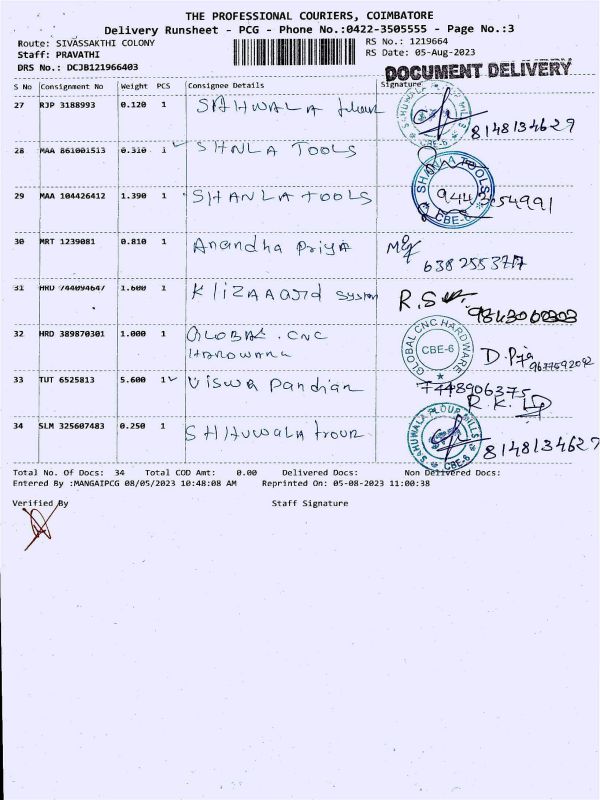 THE PROFESSIONAL COURIERS, COIMBATORE
Delivery Runsheet - PCG - Phone No.:0422-3505555 - Page No.:3
Route: SIVASSAKTHI COLONY
Staff: PRAVATHI
DRS No.: DCJB121966403
RS No.: 1219664
RS Date: 05-Aug-2023
DOCUMENT DELIVERY
S No Consignment No Weight PCS Consignee Details Signature
27 RJP 3188993 0.120 1 SAHWALA
SAHUWALA FLOUR MILLS CBE-6
8148134629
28 MAA 861001513 0.310 1 SHNLA TOOLS
29 MAA 104426412 1.390 1 SHANLA TOOLS
TOOLS CBE-6
9443254991
30 MRT 1239081 0.810 1 Anandha Priya
31 HRD 744094647 1.600 1 Klizaaard system
R.S
9843000303
32 HRD 389870301 1.000 1 GLOBAL . CNC
HARDWARE
GLOBAL CNC HARDWARE CBE-6
9677592092
33 TUT 6525813 5.600 1 Viswa Pandian
7448906375
R.K
34 SLM 325607483 0.250 1
SAHUWALA FLOUR MILLS CBE-6
8148134629
Total No. Of Docs: 34 Total COD Amt: 0.00 Delivered Docs: Non Delivered Docs:
Entered By :MANGAIPCG 08/05/2023 10:48:08 AM Reprinted On: 05-08-2023 11:00:38
Verified By Staff Signature